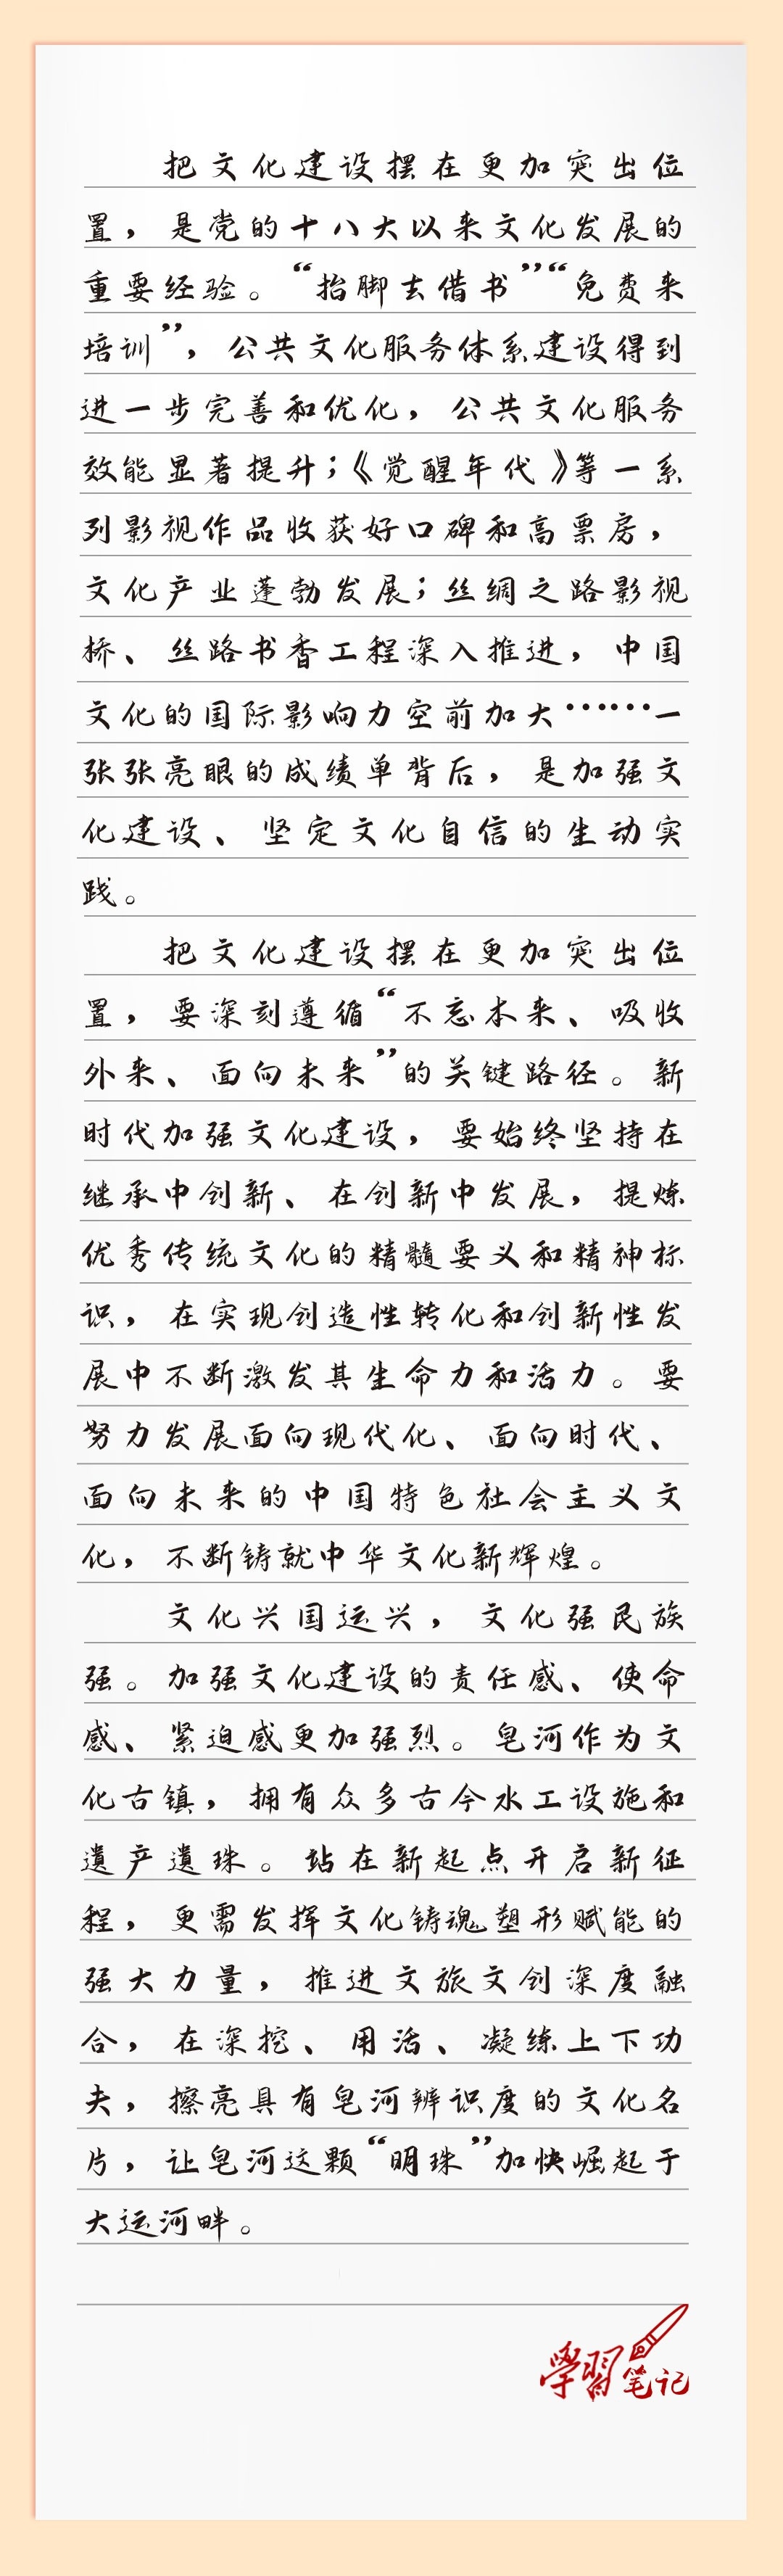 把文化建设摆在更加突出位
置，是党的十八大以来文化发展的
重要经验。“抬脚去借书”“免费来
培训”，公共文化服务体系建设得到
进一步完善和优化，公共文化服务
效能显著提升；《觉醒年代》等一系
列影视作品收获好口碑和高票房，
文化产业蓬勃发展；丝绸之路影视
桥、丝路书香工程深入推进，中国
文化的国际影响力空前加大……一
张张亮眼的成绩单背后，是加强文
化建设、坚定文化自信的生动实
践。
把文化建设摆在更加突出位
置，要深刻遵循“不忘本来、吸收
外来、面向未来”的关键路径。新
时代加强文化建设，要始终坚持在
继承中创新、在创新中发展，提炼
优秀传统文化的精髓要义和精神标
识，在实现创造性转化和创新性发
展中不断激发其生命力和活力。要
努力发展面向现代化、面向时代、
面向未来的中国特色社会主义文
化，不断铸就中华文化新辉煌。
文化兴国运兴，文化强民族
强。加强文化建设的责任感、使命
感、紧迫感更加强烈。皂河作为文
化古镇，拥有众多古今水工设施和
遗产遗珠。站在新起点开启新征
程，更需发挥文化铸魂塑形赋能的
强大力量，推进文旅文创深度融
合，在深挖、用活、凝练上下功
夫，擦亮具有皂河辨识度的文化名
片，让皂河这颗“明珠”加快崛起于
大运河畔。
學習笔记